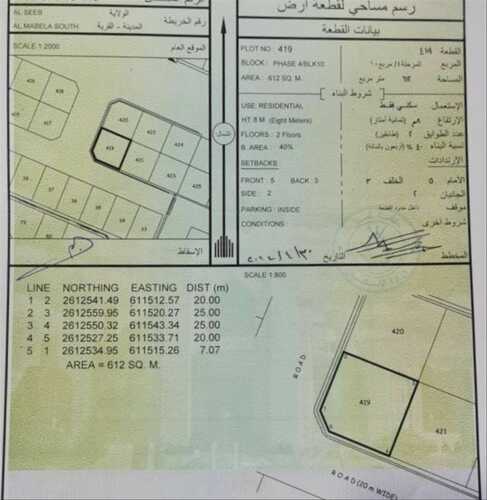 رسم مساحي لقطعة أرض
AL SEEB
الولاية
المدينة - القرية
AL MABELA SOUTH
رقم الخريطة
SCALE 1:2000
الموقع العام
بيانات القطعة
PLOT NO : 419
القطعة ٤١٩
BLOCK : PHASE 4/BLK10
المربع
AREA : 612 SQ. M.
المساحة ٦١٢ متر مربع
شروط البناء
USE: RESIDENTIAL
الإستعمال سكني فقط
HT 8 M (Eight Meters)
الإرتفاع ٨م (ثمانية أمتار)
FLOORS : 2 Floors
عدد الطوابق ٢ (طابقين)
B. AREA : 40%
نسبة البناء ٤٠% (أربعون بالمائة)
SETBACKS
الإرتدادات
FRONT : 5 BACK : 3
الأمام ٥ الخلف ٣
SIDE : 2
الجانبان ٢
PARKING : INSIDE
موقف داخل حدود القطعة
CONDITIONS
شروط أخرى
المخطط
التاريخ
الإسقاط
الشمال
426
425
420
421
419
SCALE 1:800
LINE NORTHING EASTING DIST (m)
1 2 2612541.49 611512.57 20.00
2 3 2612559.95 611520.27 25.00
3 4 2612550.32 611543.34 25.00
4 5 2612527.25 611533.71 20.00
5 1 2612534.95 611515.26 7.07
AREA = 612 SQ. M.
ROAD
420
419
421
ROAD (20m WIDE)